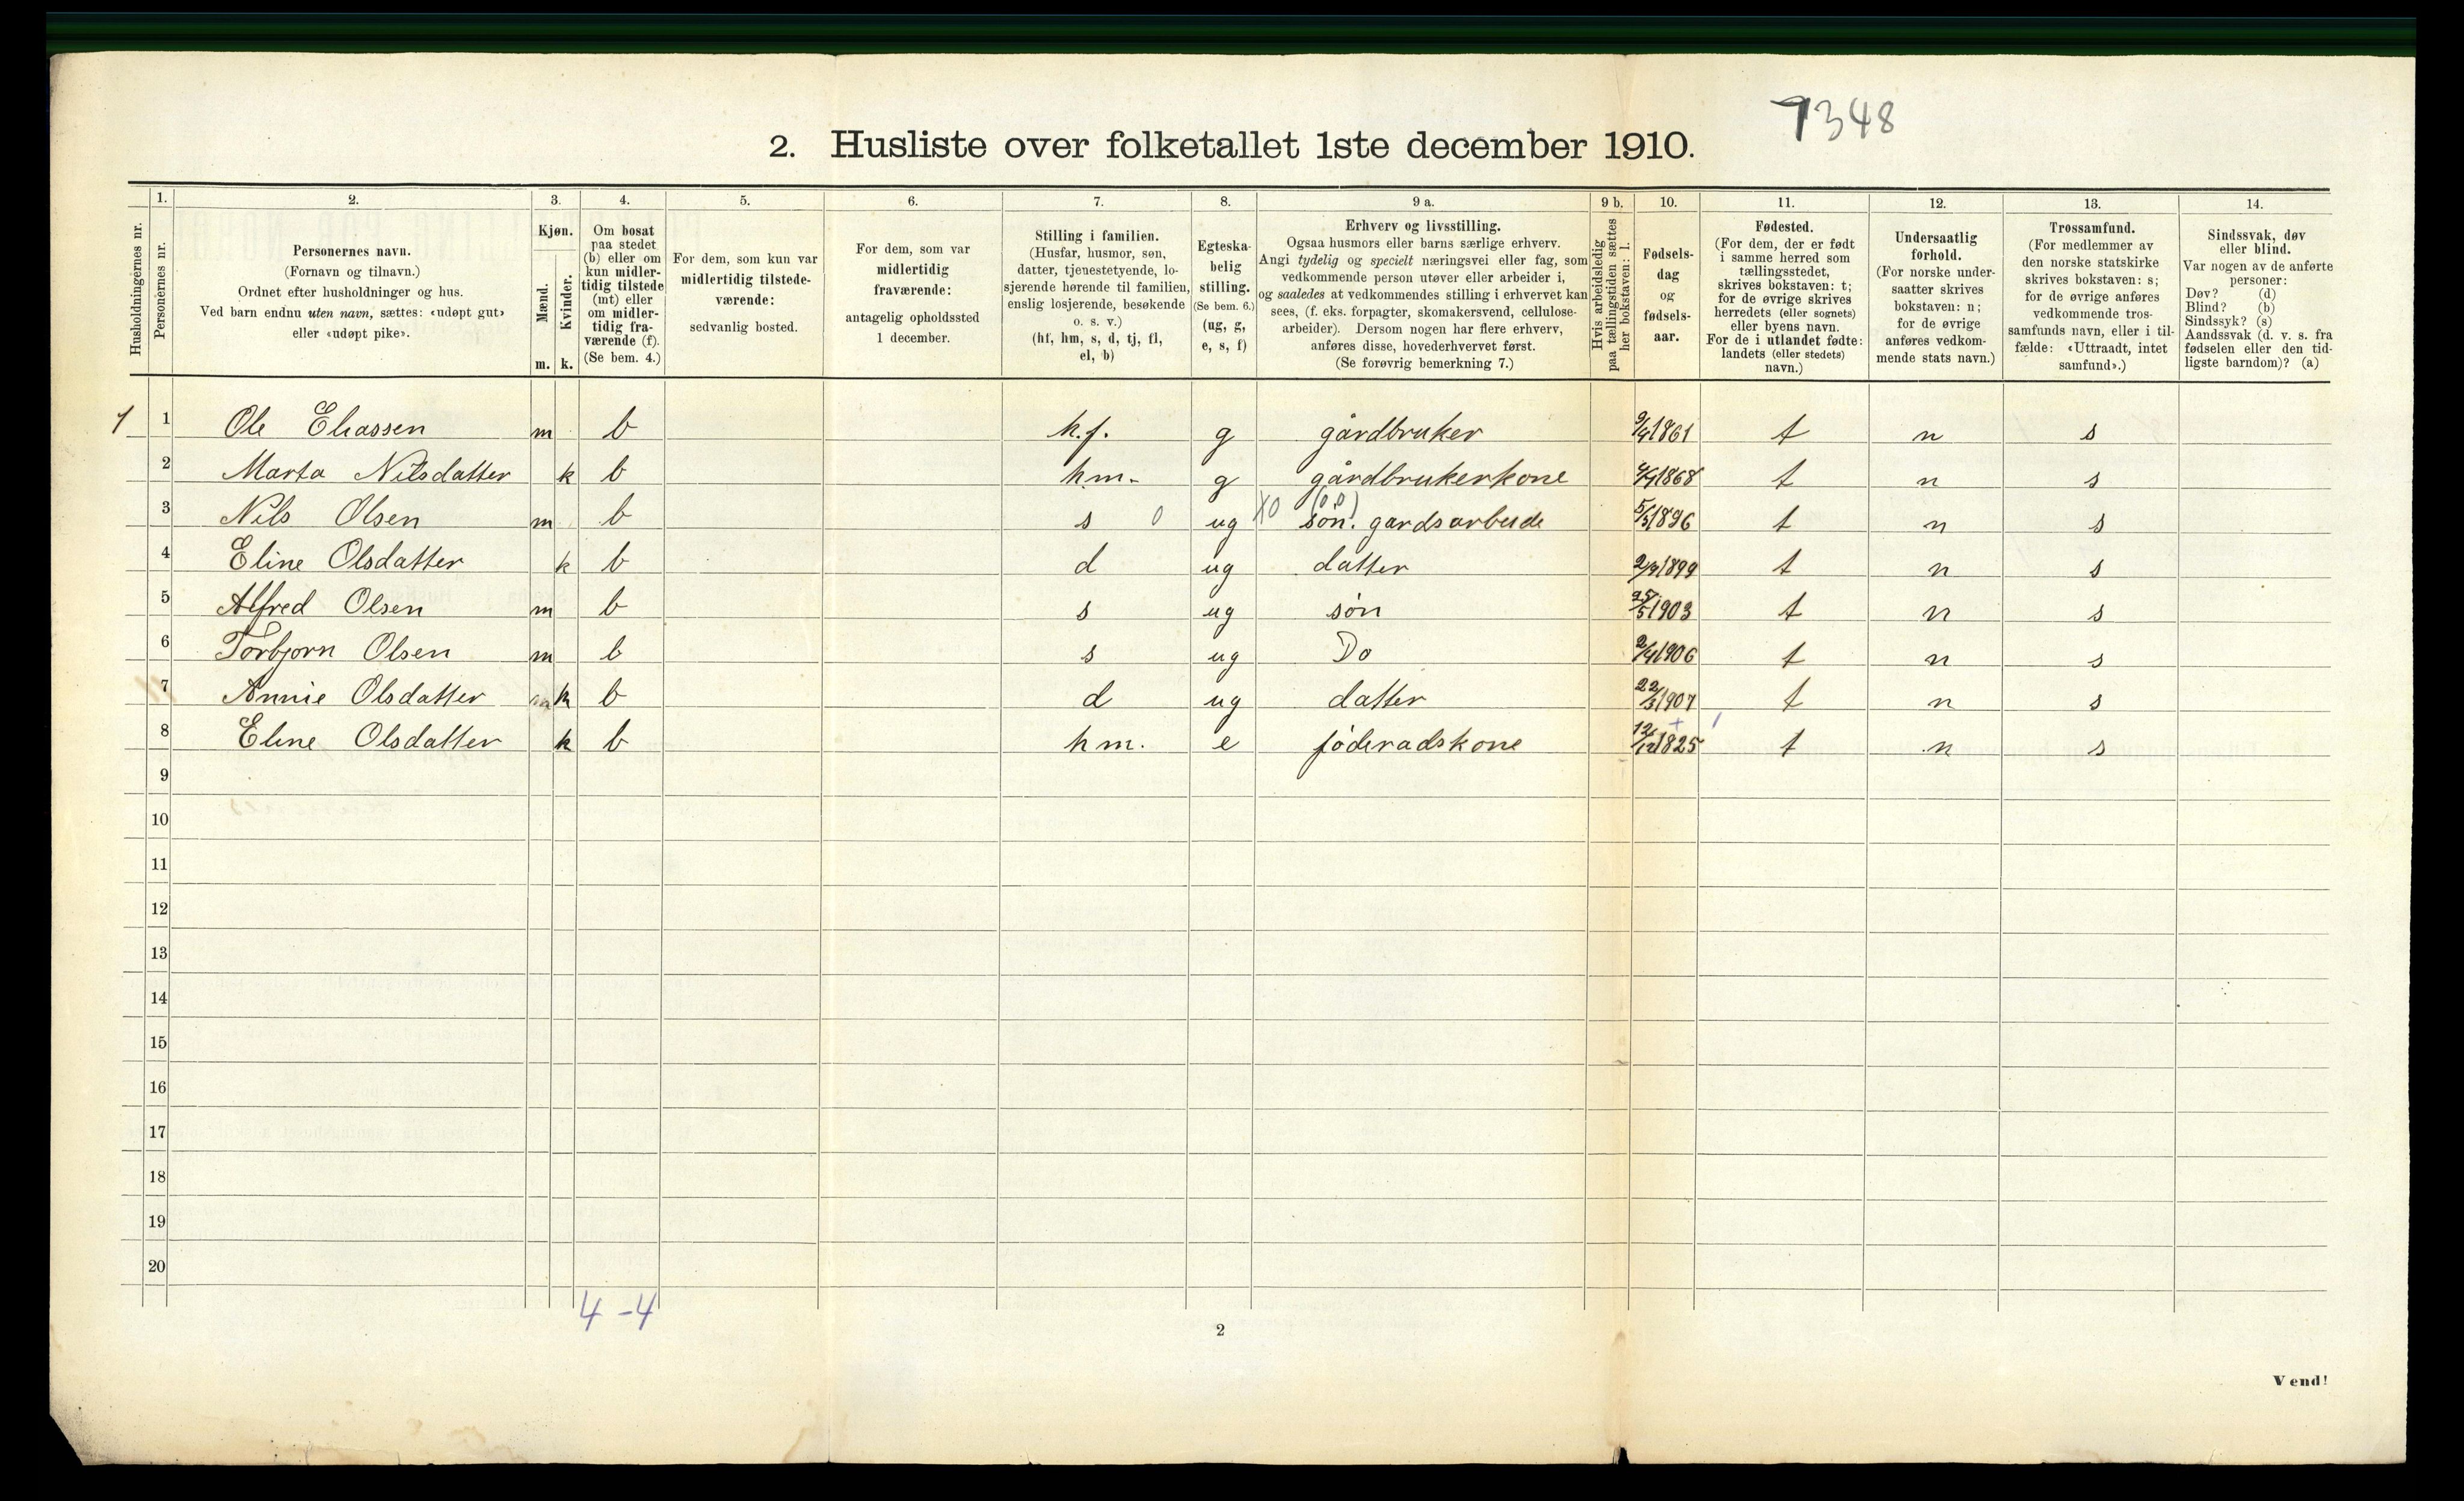 7348
2. Husliste over folketallet 1ste december 1910.
Husholdningernes nr.
1.
Personernes nr.
2.
Personernes navn.
(Fornavn og tilnavn.)
Ordnet efter husholdninger og hus.
Ved barn endnu uten navn, sættes: «udøpt gut»
eller «udøpt pike».
3.
Kjøn.
Mænd.
Kvinder.
m. k.
4.
Om bosat
paa stedet
(b) eller om
kun midler-
tidig tilstede
(mt) eller
om midler-
tidig fra-
værende (f).
(Se bem. 4.)
5.
For dem, som kun var
midlertidig tilstede-
værende:
sedvanlig bosted.
6.
For dem, som var
midlertidig
fraværende:
antagelig opholdssted
1 december.
7.
Stilling i familien.
(Husfar, husmor, søn,
datter, tjenestetyende, lo-
sjerende hørende til familien,
enslig losjerende, besøkende
o. s. v.)
(hf, hm, s, d, tj, fl,
el, b)
8.
Egteska-
belig
stilling.
(Se bem. 6.)
(ug, g,
e, s, f)
9 a.
Erhverv og livsstilling.
Ogsaa husmors eller barns særlige erhverv.
Angi tydelig og specielt næringsvei eller fag, som
vedkommende person utøver eller arbeider i,
og saaledes at vedkommendes stilling i erhvervet kan
sees, (f. eks. forpagter, skomakersvend, cellulose-
arbeider). Dersom nogen har flere erhverv,
anføres disse, hovederhvervet først.
(Se forøvrig bemerkning 7.)
9 b.
Hvis arbeidsledig
paa tællingstiden sættes
her bokstaven: l.
10.
Fødsels-
dag
og
fødsels-
aar.
11.
Fødested.
(For dem, der er født
i samme herred som
tællingsstedet,
skrives bokstaven: t;
for de øvrige skrives
herredets (eller sognets)
eller byens navn.
For de i utlandet fødte:
landets (eller stedets)
navn.)
12.
Undersaatlig
forhold.
(For norske under-
saatter skrives
bokstaven: n;
for de øvrige
anføres vedkom-
mende stats navn.)
13.
Trossamfund.
(For medlemmer av
den norske statskirke
skrives bokstaven: s;
for de øvrige anføres
vedkommende tros-
samfunds navn, eller i til-
fælde: «Uttraadt, intet
samfund».)
14.
Sindssvak, døv
eller blind.
Var nogen av de anførte
personer:
Døv? (d)
Blind? (b)
Sindssyk? (s)
Aandssvak (d. v. s. fra
fødselen eller den tid-
ligste barndom)? (a)
1 1 Ole Eliassen m b h.f. g gårdbruker 9/4 1861 t n s
2 Marta Nilsdatter k b hm. g gårdbrukerkone 1868 t n s
3 Nils Olsen m b s 0 ug X0 (0,0) søn. gardsarbeide 5/5 1896 t n s
4 Eline Olsdatter k b d ug datter 1899 t n s
5 Alfred Olsen m b s ug søn 25/5 1903 t n s
6 Torbjørn Olsen m b s ug Do 2/4 1906 t n s
7 Annie Olsdatter k b d ug datter 22/3 1907 t n s
8 Eline Olsdatter k b hm. e føderadskone 12/12 1825 t n s
9
10
11
12
13
14
15
16
17
18
19
20
4 - 4
2
Vend!